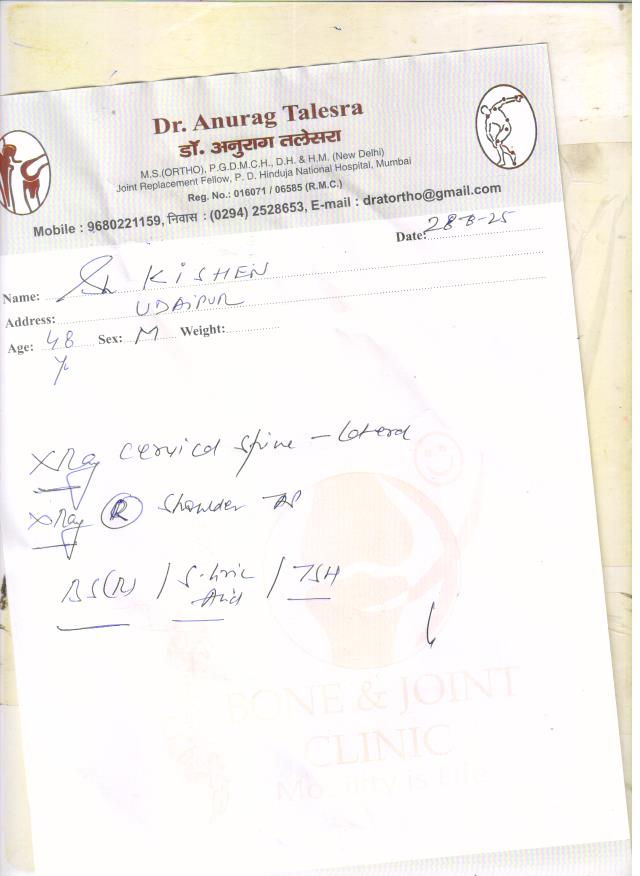 Dr. Anurag Talesra
डॉ. अनुराग तलेसरा
M.S.(ORTHO), P.G.D.M.C.H., D.H. & H.M. (New Delhi)
Joint Replacement Fellow, P. D. Hinduja National Hospital, Mumbai
Reg. No.: 016071 / 06585 (R.M.C.)
Mobile : 9680221159, निवास : (0294) 2528653, E-mail : dratortho@gmail.com
Date: 28-8-25
Name: Sh KISHEN
Address: UDAIPUR
Age: 48 Sex: M Weight:
XRay cervical spine - Lateral
XRay R Shoulder AP
BS(R) / S. Uric Acid / TSH
BONE & JOINT
CLINIC
Mobility is Life